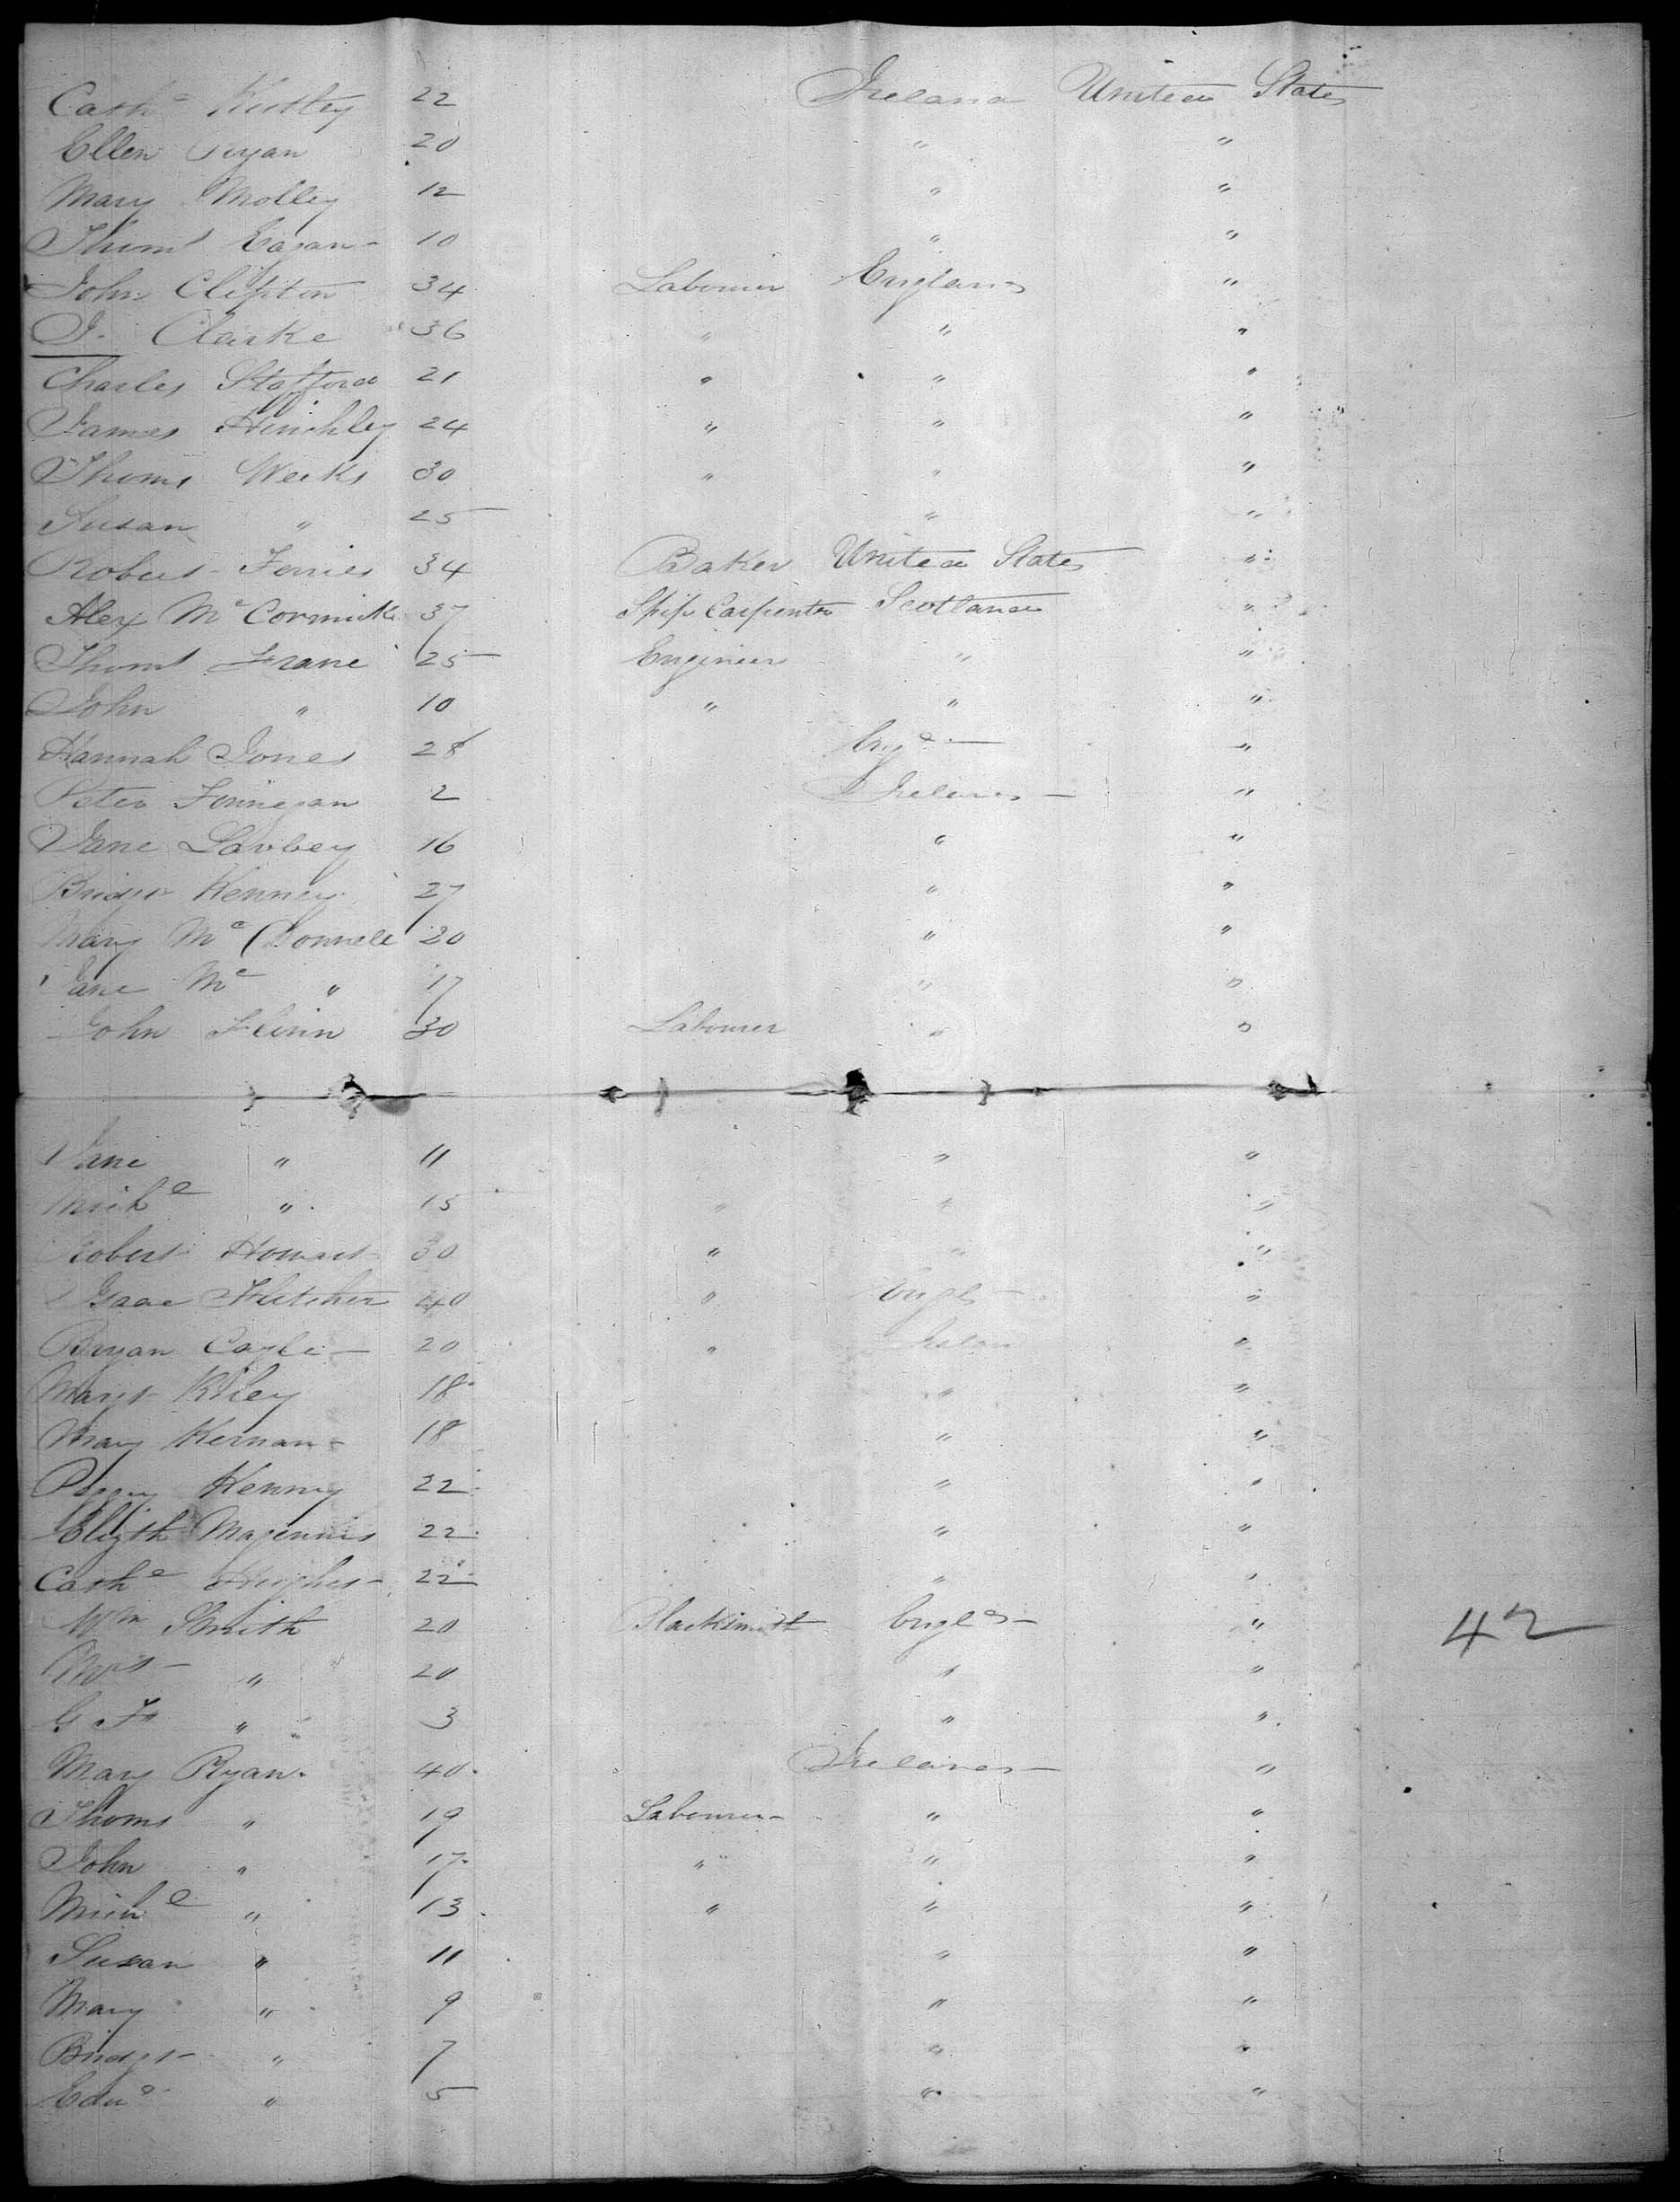 Cath<sup>e</sup> 22 Ireland United States
Ellen Ryan 20 " "
Mary Molley 12 " "
Thoms 10 " "
John Clifton 34 Labourer England "
J. Clarke 36 " " "
Charles Stafford 21 " " "
James Hinchley 24 " " "
Thoms Weeks 30 " " "
Susan " 25 " "
Robert 34 Baker United States "
Alex Mc Cormick 37 Ship Carpenter Scotland "
Thoms Frane 25 Engineer " "
John " 10 " " "
Hannah Jones 28 Eng<sup>d</sup> "
Peter Finnegan 2 Ireland "
Jane 16 " "
Bridgt Kenney 27 " "
Mary Mc Donnell 20 " "
Jane Mc " 17 " "
John Flinn 30 Labourer " "
Jane " 11 " "
Mich<sup>l</sup> " 15 " " "
Robert 30 " " "
Isaac Fletcher 40 " Engl "
Bryan 20 " Irelan "
Margt Riley 18 " "
Mary Kernan 18 " "
Peggy Kenny 22 " "
Elizth Magennis 22 " "
Cath<sup>e</sup> Hughes 22 " "
Wm Smith 20 Blacksmith Engl<sup>d</sup> " 42
Mrs " 20 " "
G F " 3 " "
Mary Ryan 40 Ireland "
Thoms " 19 Labourer " "
John " 17 " " "
Mich<sup>l</sup> " 13 " " "
Susan " 11 " "
Mary " 9 " "
Bridgt " 7 " "
Edw<sup>d</sup> " 5 " "